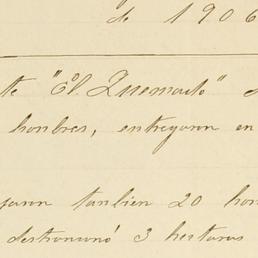 de 1906
"El Quemado"
hombres, entregaron en
tanbien 20
destroncaró 3 hectaras